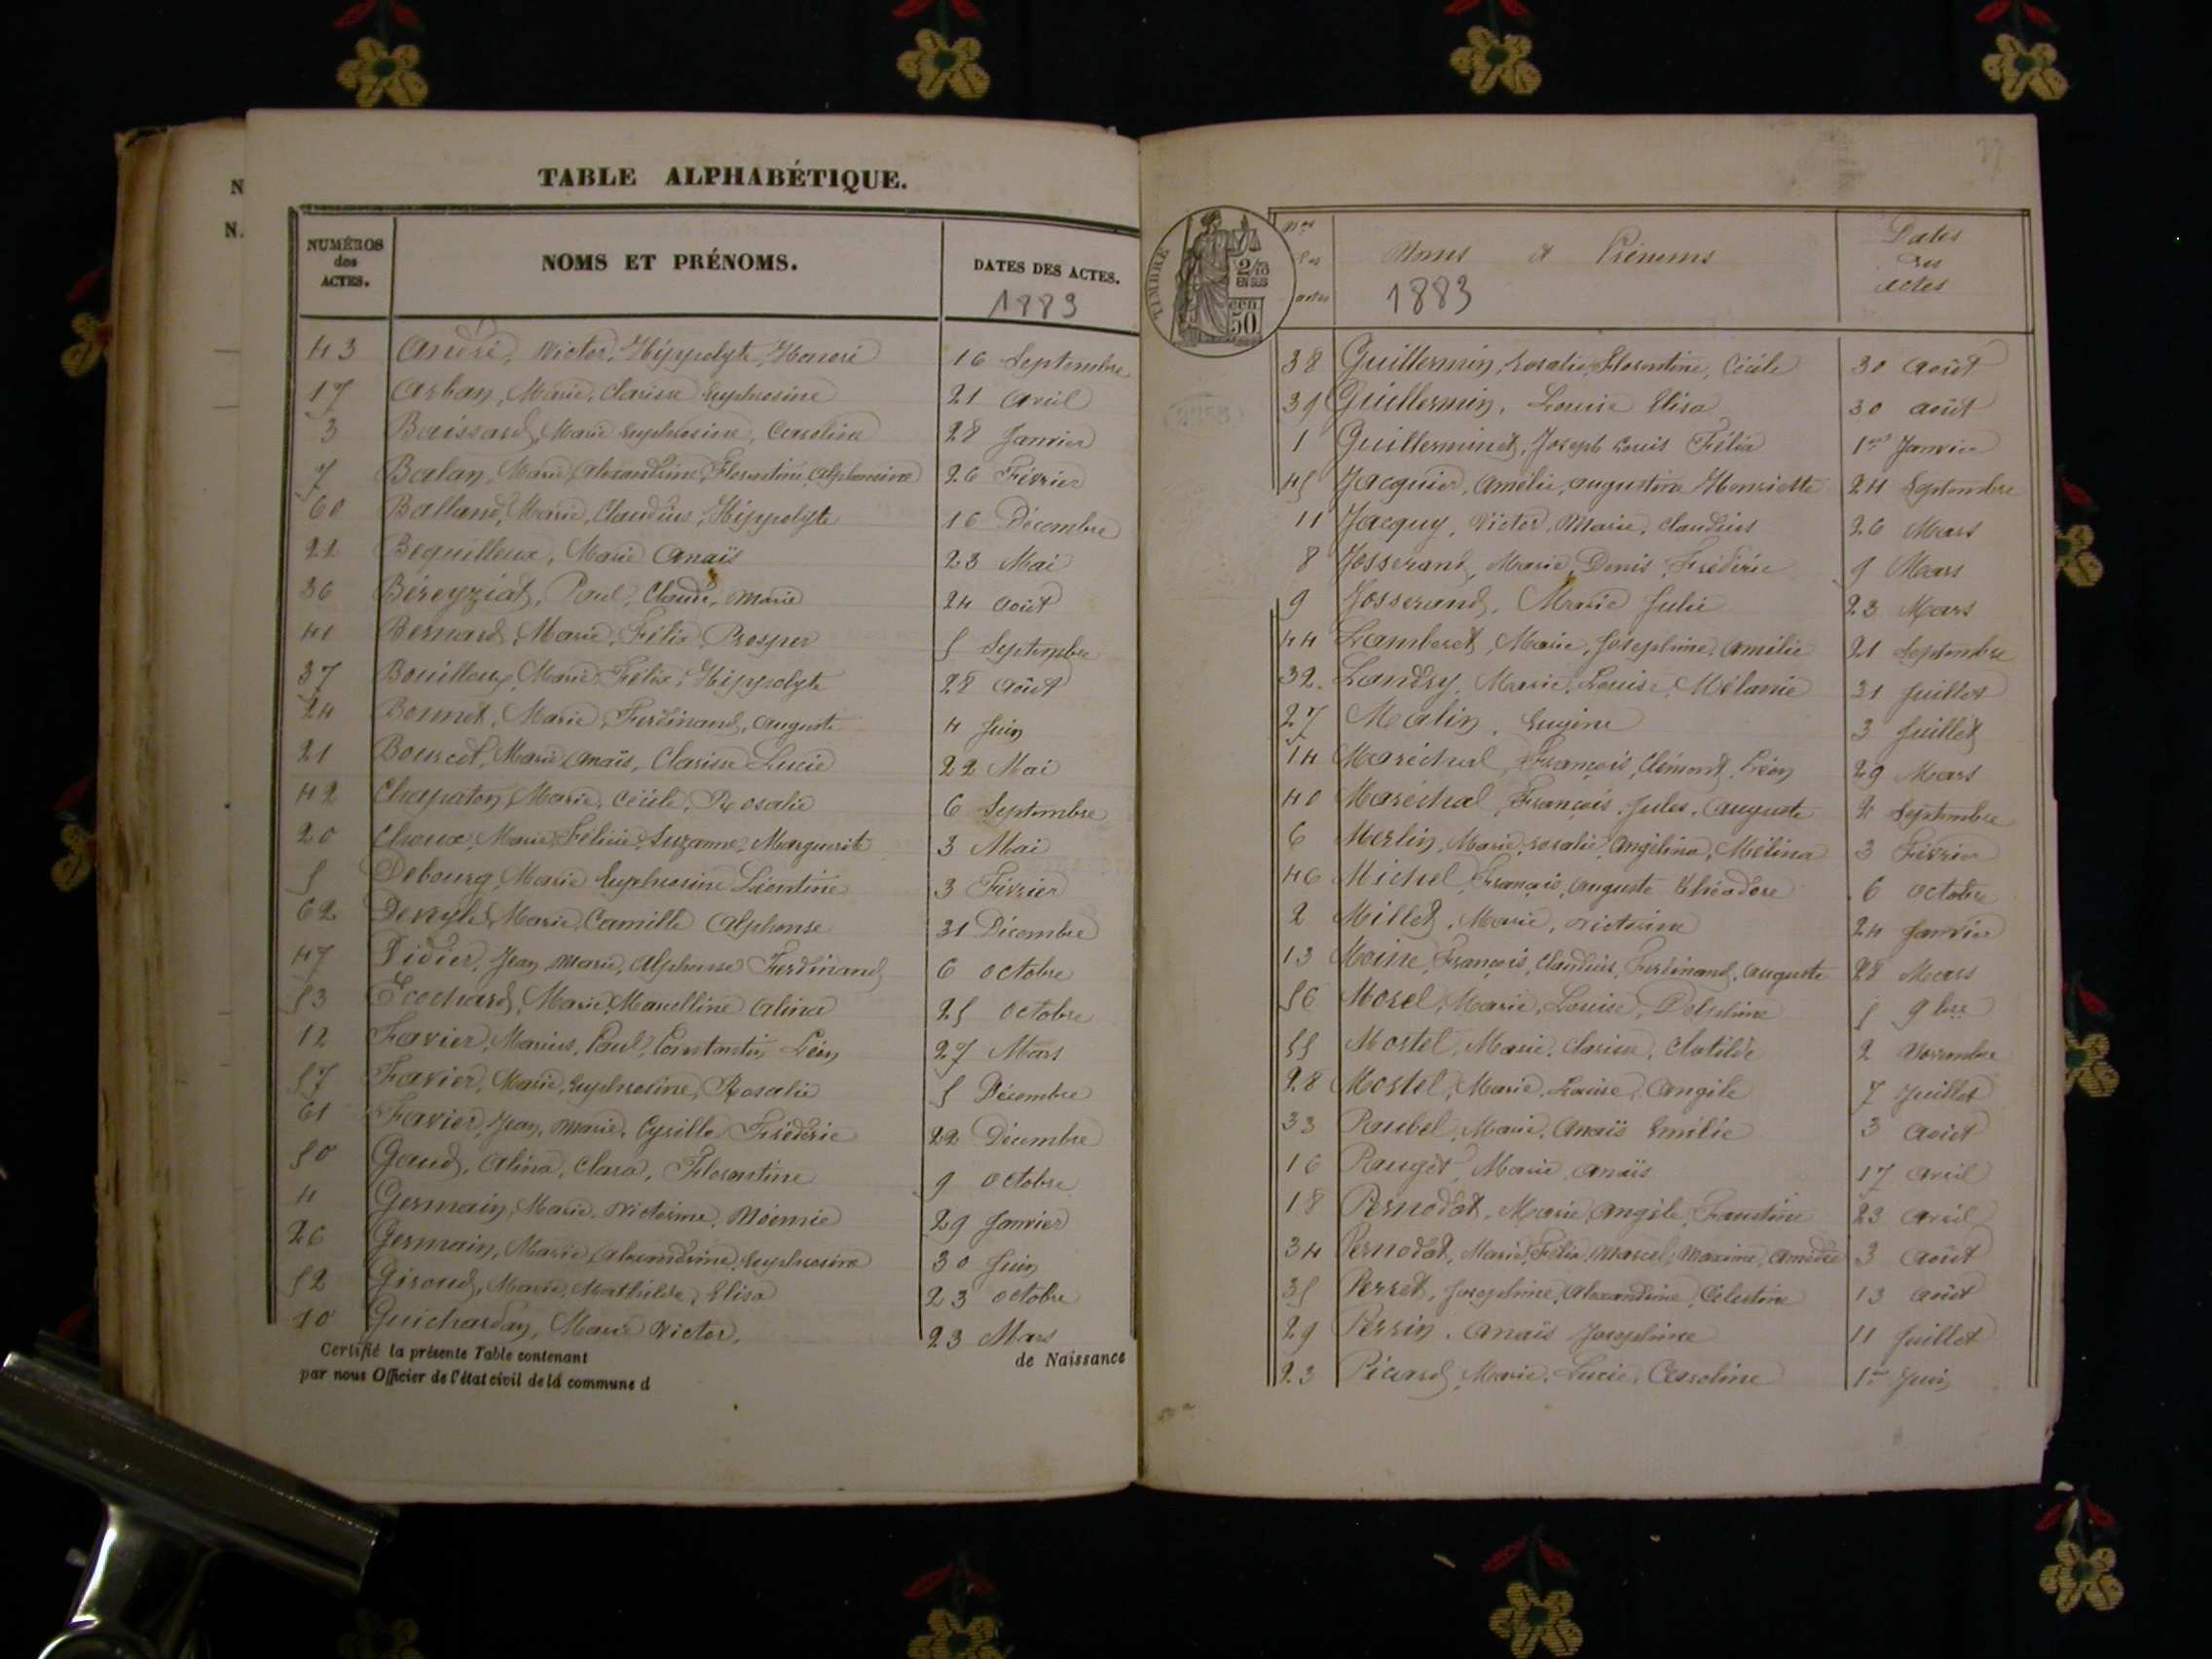 N
N.
TABLE ALPHABÉTIQUE.
NUMÉROS des ACTES.
NOMS ET PRÉNOMS.
DATES DES ACTES.
1883
43 André, Victor, Hippolyte, Honoré 16 Septembre
17 Arban, Marie, Clarisse Euphrosine 21 Avril
3 Boissard, Marie Euphrosine, Caroline 28 Janvier
7 Balan, Marie, Alexandrine, Florentine, Alphonsine 26 Février
60 Balland, Marie, Claudius, Hippolyte 16 Décembre
22 Bequilleux, Marie Anaïs 23 Mai
36 Béreyziat, Paul, Claude, Marie 24 août
41 Bernard, Marie, Félix, Prosper 5 Septembre
37 Bouilloux, Marie, Félix, Hippolyte 28 août
24 Bonnet, Marie, Ferdinand, Auguste 4 Juin
21 Bourcet, Marie, Anaïs, Clarisse Lucie 22 Mai
42 Chapaton, Marie, Cécile, Rosalie 6 Septembre
20 Choux, Marie, Félicie, Suzanne, Marguerite 3 Mai
5 Debourg, Marie Euphrosine Léontine 3 Février
62 Marie, Camille Alphonse 31 Décembre
47 Didier, Jean Marie, Alphonse Ferdinand 6 octobre
53 Ecochard, Marie, Marcelline Alina 25 octobre
12 Favier, Marius, Paul, Constantin Léon 27 Mars
57 Favier, Marie, Euphroline, Rosalie 5 Décembre
61 Favier, Jean, Marie, Cyrille Frédéric 22 Décembre
50 Gaud, Alina, Clara, Florentine 9 octobre
4 Germain, Marie, Victorine, Noémie 29 Janvier
26 Germain, Marie, Alexandrine, Euphrosine 30 Juin
52 Giroud, Marie, Mathilde, Elisa 23 octobre
10 Guichardan, Marie Victor, 23 Mars
Certifié la présente Table contenant de Naissance
par nous Officier de l'état civil de la commune d
TIMBRE
2/10
EN SUS
50
Nos des actes
Noms et Prénoms
Dates des actes
1883
38 Guillermin, Rosalie, Florentine, Cécile 30 août
39 Guillermin, Louise Elisa 30 août
1 Guillerminet, Joseph Louis Félix 1er Janvier
45 Jacquier, Amélie, Augustine Henriette 24 Septembre
11 Jacquy, Victor, Marie, Claudius 26 Mars
8 Josserand, Marie, Denis, Frédéric 9 Mars
9 Josserand, Marie Julie 23 Mars
44 Lamberet, Marie, Joséphine, Amélie 21 Septembre
32 Landry, Marie, Louise, Mélanie 31 Juillet
27 Malin, Eugène 3 Juillet
14 Maréchal, François, Clément, Léon 29 Mars
40 Maréchal, François, Jules, Auguste Septembre
6 Merlin, Marie, Rosalie, Angélina, Mélina 3 Février
46 Michel, François, Auguste Théodore 6 octobre
2 Millet, Marie, Victorine 24 Janvier
13 Moine, François, Claudius, Ferdinand, Auguste 28 Mars
56 Morel, Marie, Louise, Delphine 5 9bre
55 Mostel, Marie, Clarisse, Clotilde 2 Novembre
28 Mostel, Marie, Louise, Angèle 7 Juillet
33 Raubel, Marie, Anaïs Emilie 3 août
16 Marie, Anaïs 17 Avril
18 Pernodat, Marie, Angèle, Faustine 23 Avril
34 Pernodat, Marie, Félix, Marcel, Maxime, Amédée 3 août
35 Perret, Joséphine, Alexandrine, Célestine 13 août
29 Perrin, Anaïs Joséphine 11 Juillet
23 Picard, Marie, Lucie, Caroline 1er Juin